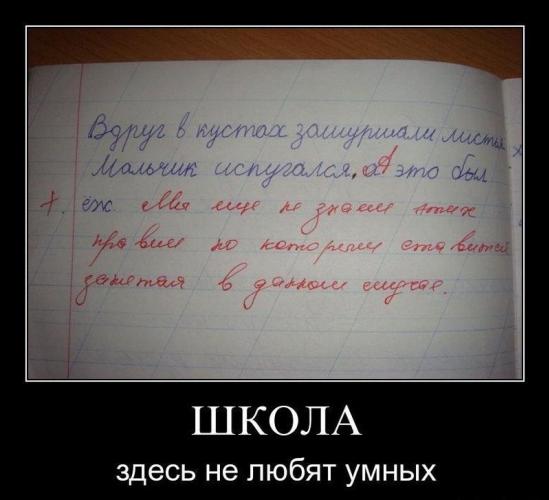 Вдруг в кустах зашуршали листья
Мальчик испугался, а это был
ёж. Мы еще не знаем этих
правил по которым ставится
запятая в данном случае.
ШКОЛА
здесь не любят умных